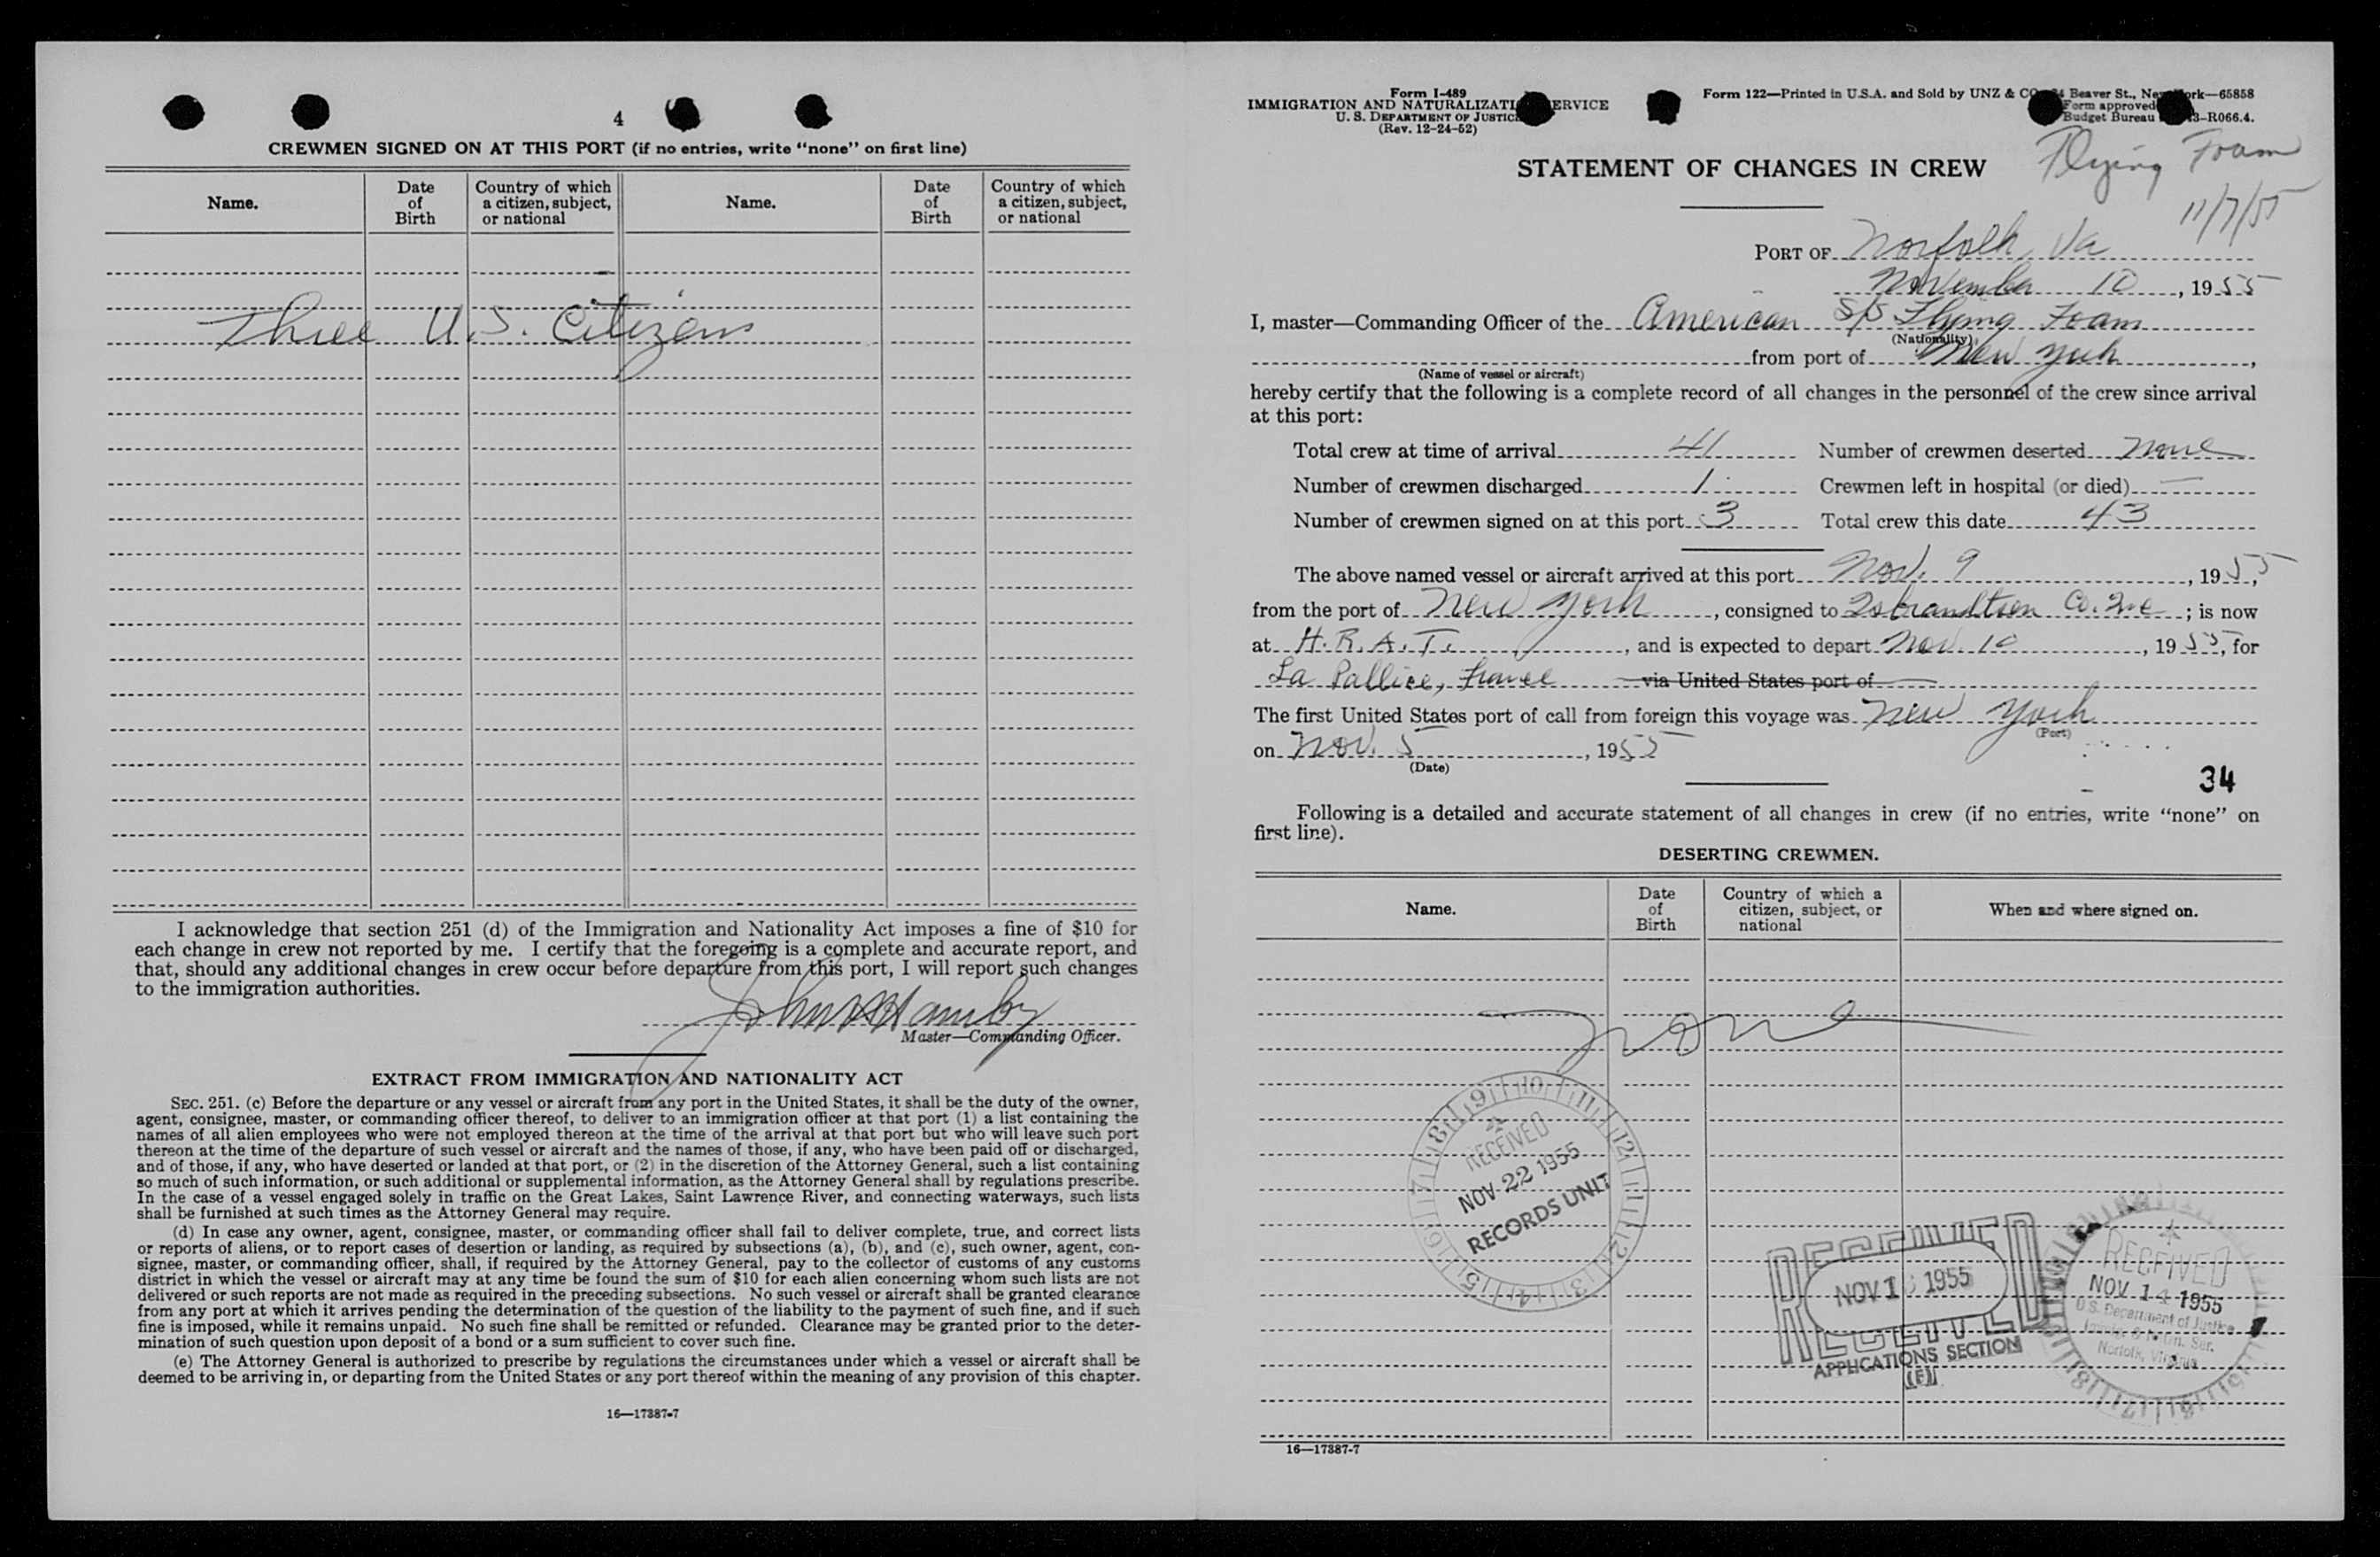 4
CREWMEN SIGNED ON AT THIS PORT (if no entries, write “none” on first line)
Name. Date of Birth Country of which a citizen, subject, or national Name. Date of Birth Country of which a citizen, subject, or national
Three U.S. Citizens
I acknowledge that section 251 (d) of the Immigration and Nationality Act imposes a fine of $10 for
each change in crew not reported by me. I certify that the foregoing is a complete and accurate report, and
that, should any additional changes in crew occur before departure from this port, I will report such changes
to the immigration authorities.
Master—Commanding Officer.
EXTRACT FROM IMMIGRATION AND NATIONALITY ACT
SEC. 251. (c) Before the departure or any vessel or aircraft from any port in the United States, it shall be the duty of the owner,
agent, consignee, master, or commanding officer thereof, to deliver to an immigration officer at that port (1) a list containing the
names of all alien employees who were not employed thereon at the time of the arrival at that port but who will leave such port
thereon at the time of the departure of such vessel or aircraft and the names of those, if any, who have been paid off or discharged,
and of those, if any, who have deserted or landed at that port, or (2) in the discretion of the Attorney General, such a list containing
so much of such information, or such additional or supplemental information, as the Attorney General shall by regulations prescribe.
In the case of a vessel engaged solely in traffic on the Great Lakes, Saint Lawrence River, and connecting waterways, such lists
shall be furnished at such times as the Attorney General may require.
(d) In case any owner, agent, consignee, master, or commanding officer shall fail to deliver complete, true, and correct lists
or reports of aliens, or to report cases of desertion or landing, as required by subsections (a), (b), and (c), such owner, agent, con-
signee, master, or commanding officer, shall, if required by the Attorney General, pay to the collector of customs of any customs
district in which the vessel or aircraft may at any time be found the sum of $10 for each alien concerning whom such lists are not
delivered or such reports are not made as required in the preceding subsections. No such vessel or aircraft shall be granted clearance
from any port at which it arrives pending the determination of the question of the liability to the payment of such fine, and if such
fine is imposed, while it remains unpaid. No such fine shall be remitted or refunded. Clearance may be granted prior to the deter-
mination of such question upon deposit of a bond or a sum sufficient to cover such fine.
(e) The Attorney General is authorized to prescribe by regulations the circumstances under which a vessel or aircraft shall be
deemed to be arriving in, or departing from the United States or any port thereof within the meaning of any provision of this chapter.
16—17387-7
Form I-489
IMMIGRATION AND NATURALIZATI ERVICE
U. S. DEPARTMENT OF JUSTIC
(Rev. 12-24-52)
Form 122—Printed in U.S.A. and Sold by UNZ & CO Beaver St., Ne ork—65858
Form approved
Budget Bureau 3-R066.4.
Flying Foam
11/7/55
STATEMENT OF CHANGES IN CREW
PORT OF Norfolk, Va
November 10, 1955
I, master—Commanding Officer of the American S/S Flying Foam
(Nationality)
from port of New York,
(Name of vessel or aircraft)
hereby certify that the following is a complete record of all changes in the personnel of the crew since arrival
at this port:
Total crew at time of arrival 41 Number of crewmen deserted None
Number of crewmen discharged 1 Crewmen left in hospital (or died) —
Number of crewmen signed on at this port 3 Total crew this date 43
The above named vessel or aircraft arrived at this port Nov. 9, 1955,
from the port of New York, consigned to Isbrandtsen Co. Inc; is now
at H. R. A. T., and is expected to depart Nov. 10, 1955, for
La Pallice, France via United States port of
The first United States port of call from foreign this voyage was New York
(Port)
on Nov. 5, 1955
(Date)
34
Following is a detailed and accurate statement of all changes in crew (if no entries, write “none” on
first line).
DESERTING CREWMEN.
Name. Date of Birth Country of which a citizen, subject, or national When and where signed on.
None
RECEIVED
NOV 22 1955
RECORDS UNIT
RECEIVED
NOV 1 1955
APPLICATIONS SECTION
(F)
RECEIVED
NOV 14 1955
U.S. Department of Justice
Immig. & Natn. Ser.
Norfolk, Virginia
16—17387-7